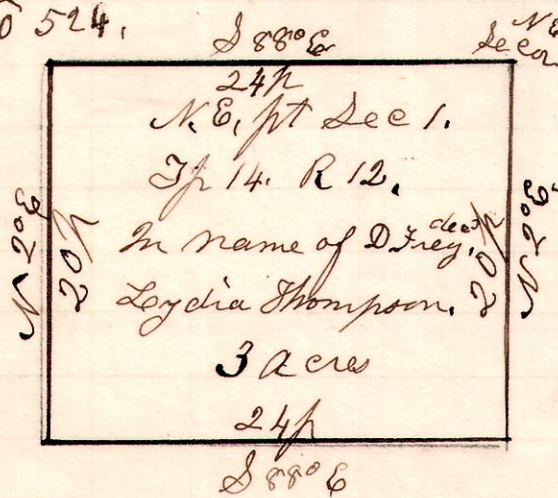 524.
S 88° E
N.E.
Sec cor
24p
N.E. pt Sec 1.
Tp 14. R 12.
In name of D Frey, decd
Lydia Thompson.
3 acres
24p
S 88° E
N 2° E
20p
20p
N 2° E